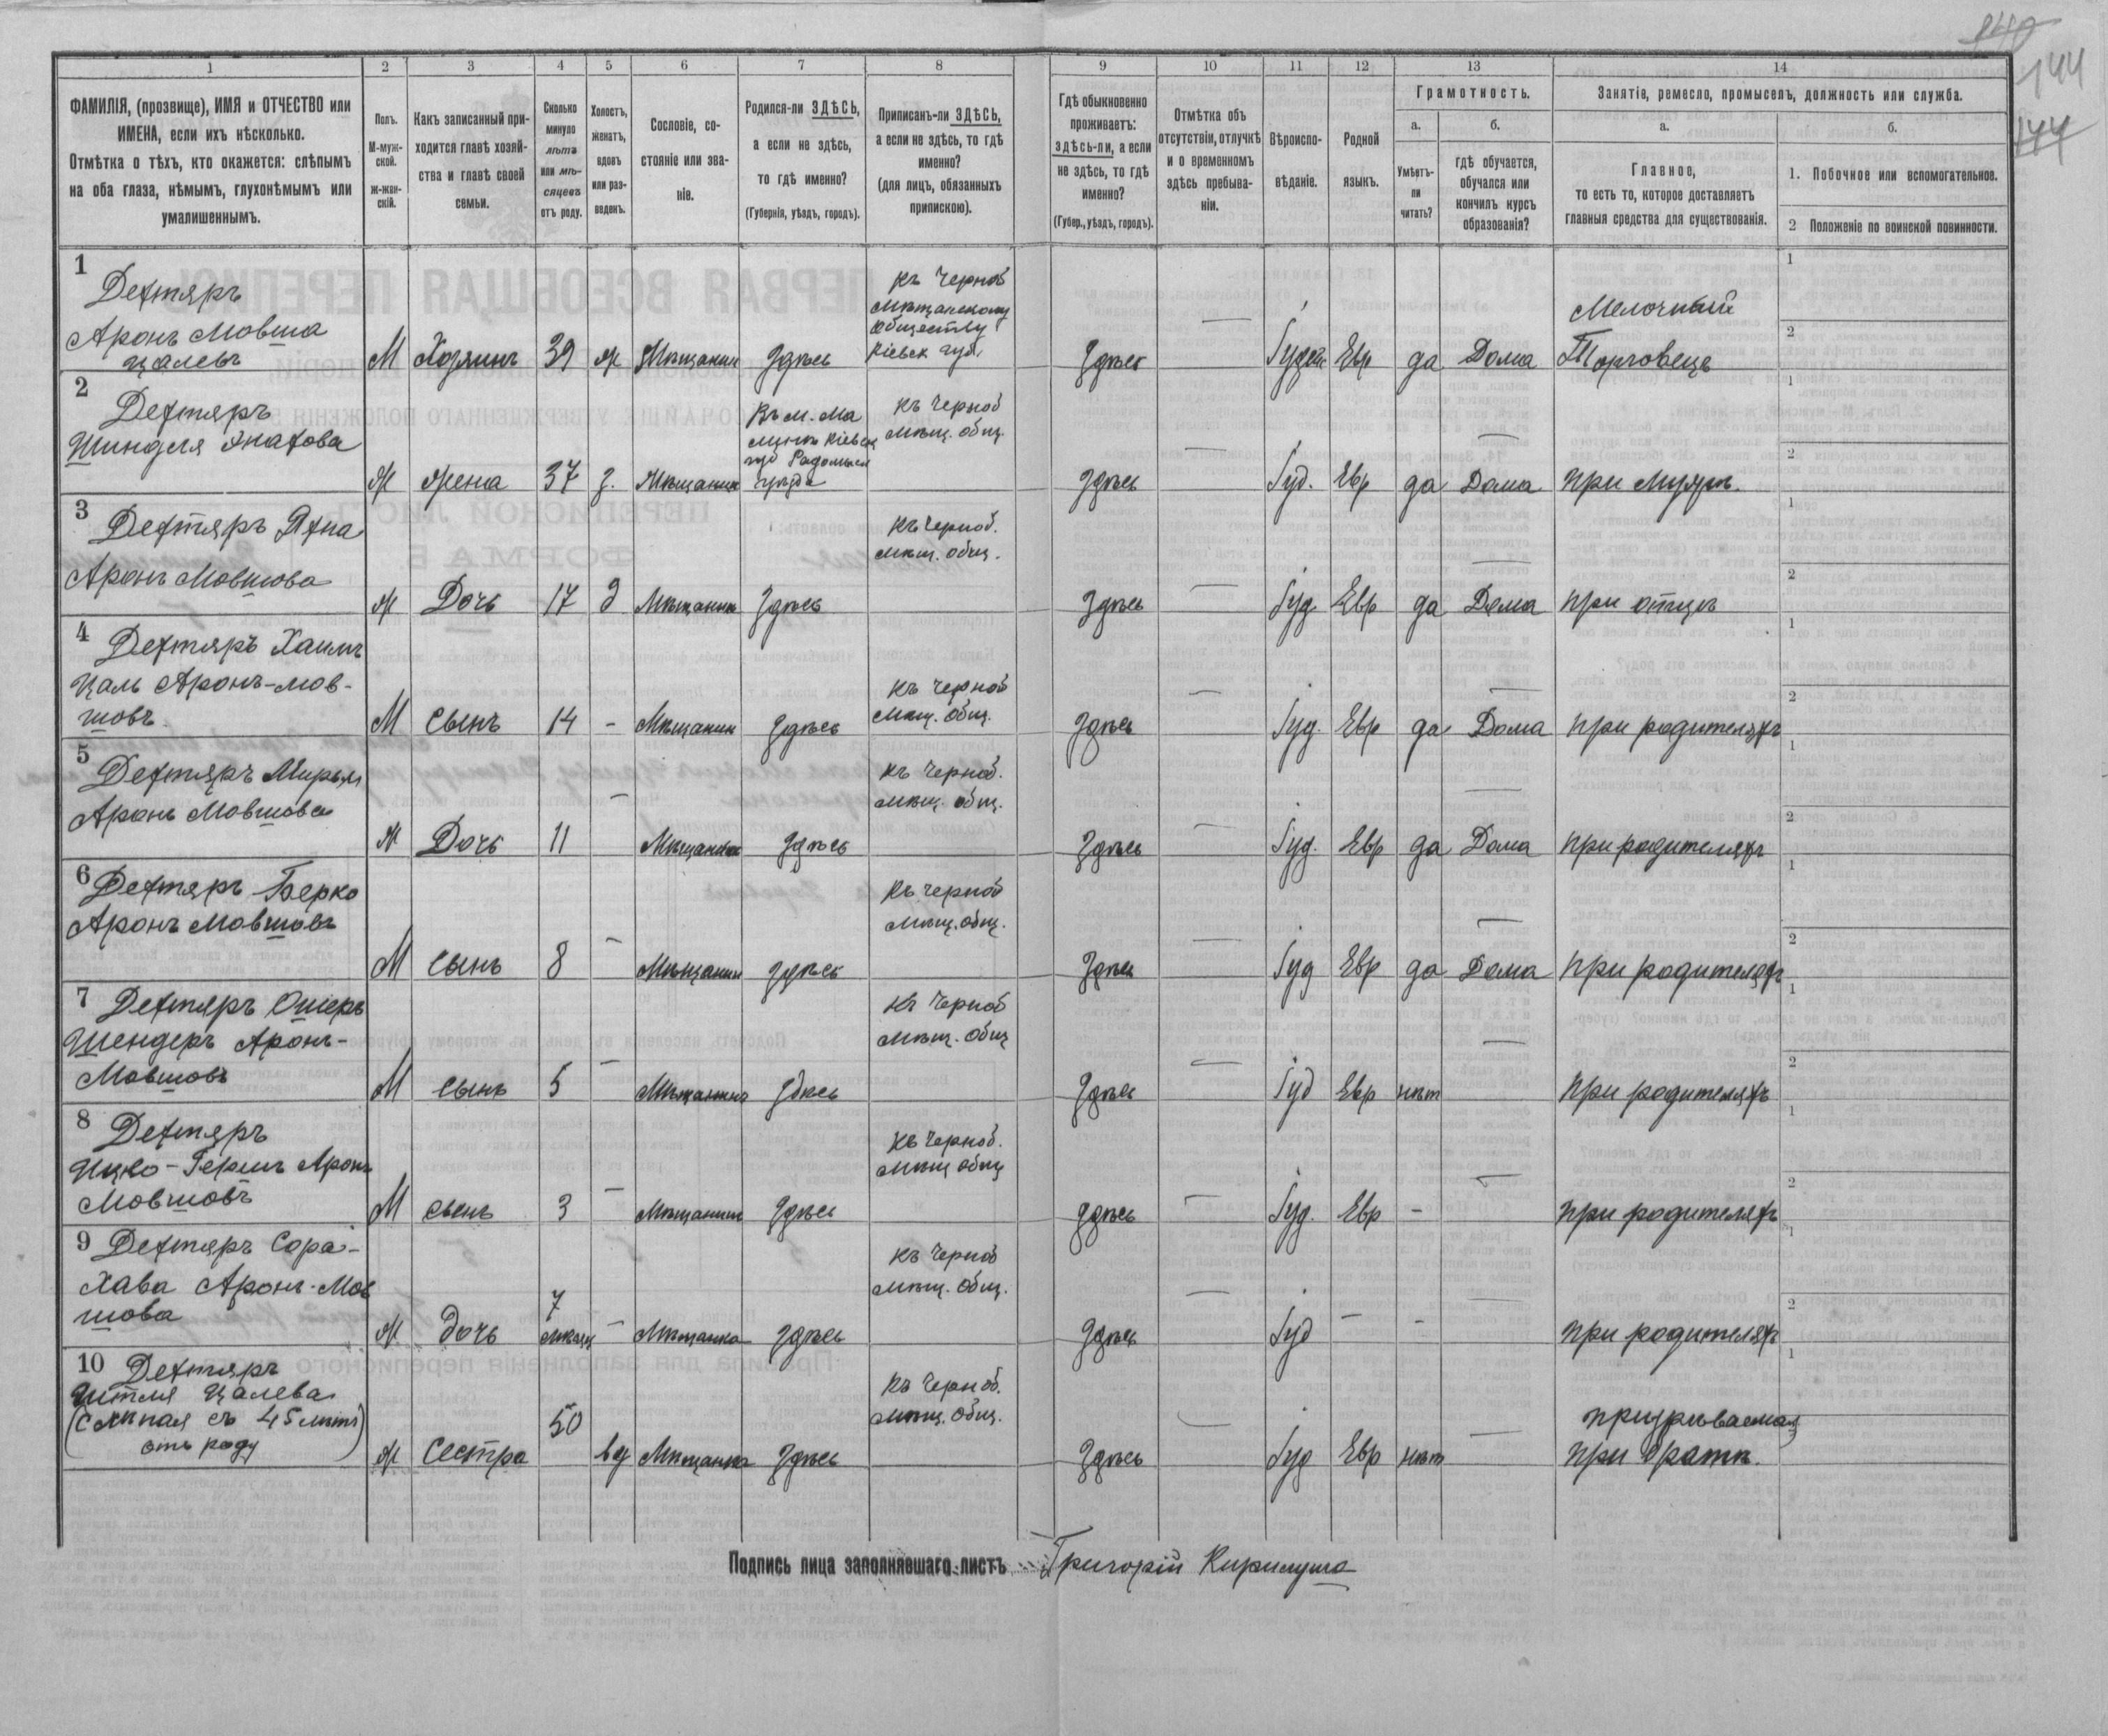 240
144
144
1 2 3 4 5 6 7 8 9 10 11 12 13 14
ФАМИЛІЯ, (прозвище), ИМЯ и ОТЧЕСТВО или
ИМЕНА, если ихъ нѣсколько.
Отмѣтка о тѣхъ, кто окажется: слѣпымъ
на оба глаза, нѣмымъ, глухонѣмымъ или
умалишеннымъ.
Полъ.
М-муж-
ской.
ж-жен-
скій.
Какъ записанный при-
ходится главѣ хозяй-
ства и главѣ своей
семьи.
Сколько
минуло
лѣтъ
или мѣ-
сяцевъ
отъ роду.
Холостъ,
женатъ,
вдовъ
или раз-
веденъ.
Сословіе, со-
стояніе или зва-
ніе.
Родился-ли ЗДѢСЬ,
а если не здѣсь,
то гдѣ именно?
(Губернія, уѣздъ, городъ).
Приписанъ-ли ЗДѢСЬ,
а если не здѣсь, то гдѣ
именно?
(для лицъ, обязанныхъ
припискою).
Гдѣ обыкновенно
проживаетъ:
здѣсь-ли, а если
не здѣсь, то гдѣ
именно?
(Губер., уѣздъ, городъ).
Отмѣтка объ
отсутствіи, отлучкѣ
и о временномъ
здѣсь пребыва-
ніи.
Вѣроиспо-
вѣданіе.
Родной
языкъ.
Грамотность.
а.
Умѣетъ-
ли
читать?
б.
гдѣ обучается,
обучался или
кончилъ курсъ
образованія?
Занятіе, ремесло, промыселъ, должность или служба.
а.
Главное,
то есть то, которое доставляетъ
главныя средства для существованія.
б.
1. Побочное или вспомогательное.
2 Положеніе по воинской повинности.
1
Дехтяръ
Аронъ Мовша
Цалевъ
М Хозяинъ 39 ж Мѣщанин Здѣсь
Къ Черноб
Мѣщанскому
Обществу
Кіевск губ.
Здѣсь — Іудей Евр да Дома
Мелочный
Торговецъ
1
2
2
Дехтяръ
Шинделя Хнахова
ж жена 37 з. Мѣщанка
Въ м. Ма
линѣ Кіевск
губ Радомысл
уѣзда
Къ Черноб
мѣщ. общ.
Здѣсь — Іуд. Евр да Дома при мужѣ
1
2
3
Дехтяръ Яхна
Аронъ Мовшова
ж Дочь 17 д Мѣщанка Здѣсь
Къ Черноб.
мѣщ. общ.
Здѣсь — Іуд. Евр да Дома при отцѣ
1
2
4
Дехтяръ Хаимъ
Цаль Аронъ-Мов-
шовъ
М сынъ 14 - Мѣщанин Здѣсь
Къ Черноб
мѣщ. общ.
Здѣсь — Іуд. Евр да Дома при родителяхъ
1
2
5
Дехтяръ Мирьям
Аронъ Мовшова
ж Дочь 11 — Мѣщанка Здѣсь
Къ Черноб.
мѣщ. общ.
Здѣсь — Іуд. Евр да Дома при родителяхъ
1
2
6
Дехтяръ Берко
Аронъ Мовшовъ
М сынъ 8 — Мѣщанин здѣсь
Къ Черноб
мѣщ. общ.
Здѣсь — Іуд Евр да Дома при родителяхъ
1
2
7
Дехтяръ Ошеръ
Шендеръ Аронъ-
Мовшовъ
М сынъ 5 — Мѣщанинъ здѣсь
Къ Черноб
мѣщ. общ
Здѣсь — Іуд Евр нѣт при родителяхъ
1
2
8
Дехтяръ
Ицко-Гершъ Аронъ
Мовшовъ
М сынъ 3 — Мѣщанин Здѣсь
Къ Черноб.
мѣщ общ
здѣсь — Іуд. Евр - при родителяхъ
1
2
9
Дехтяръ Сора-
Хава Аронъ-Мов
шова
ж дочь
7
мѣсяц
— Мѣщанка здѣсь
Къ Черноб
мѣщ. общ.
Здѣсь — Іуд - - при родителяхъ
1
2
10
Дехтяръ
Цалева
(Слѣпая съ 45 лѣтъ
отъ роду)
ж Сестра 50 вд Мѣщанка Здѣсь
Къ Черноб.
мѣщ. общ.
Здѣсь — Іуд Евр нѣт
призрѣваемая
при братѣ.
1
Подпись лица заполнявшаго листъ Григорій